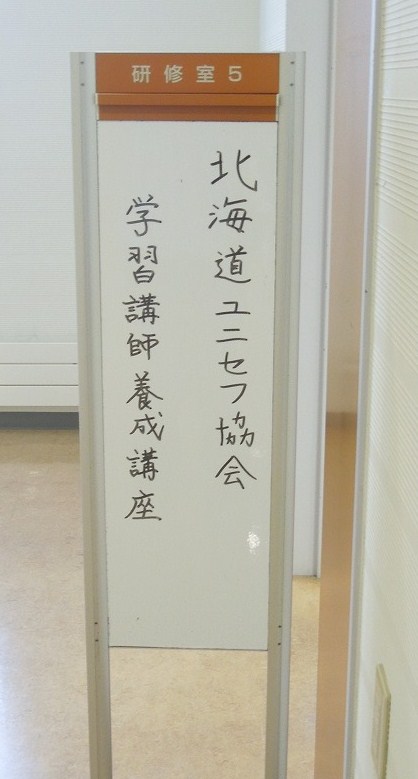 研修室5
北海道ユニセフ協会
学習講師養成講座